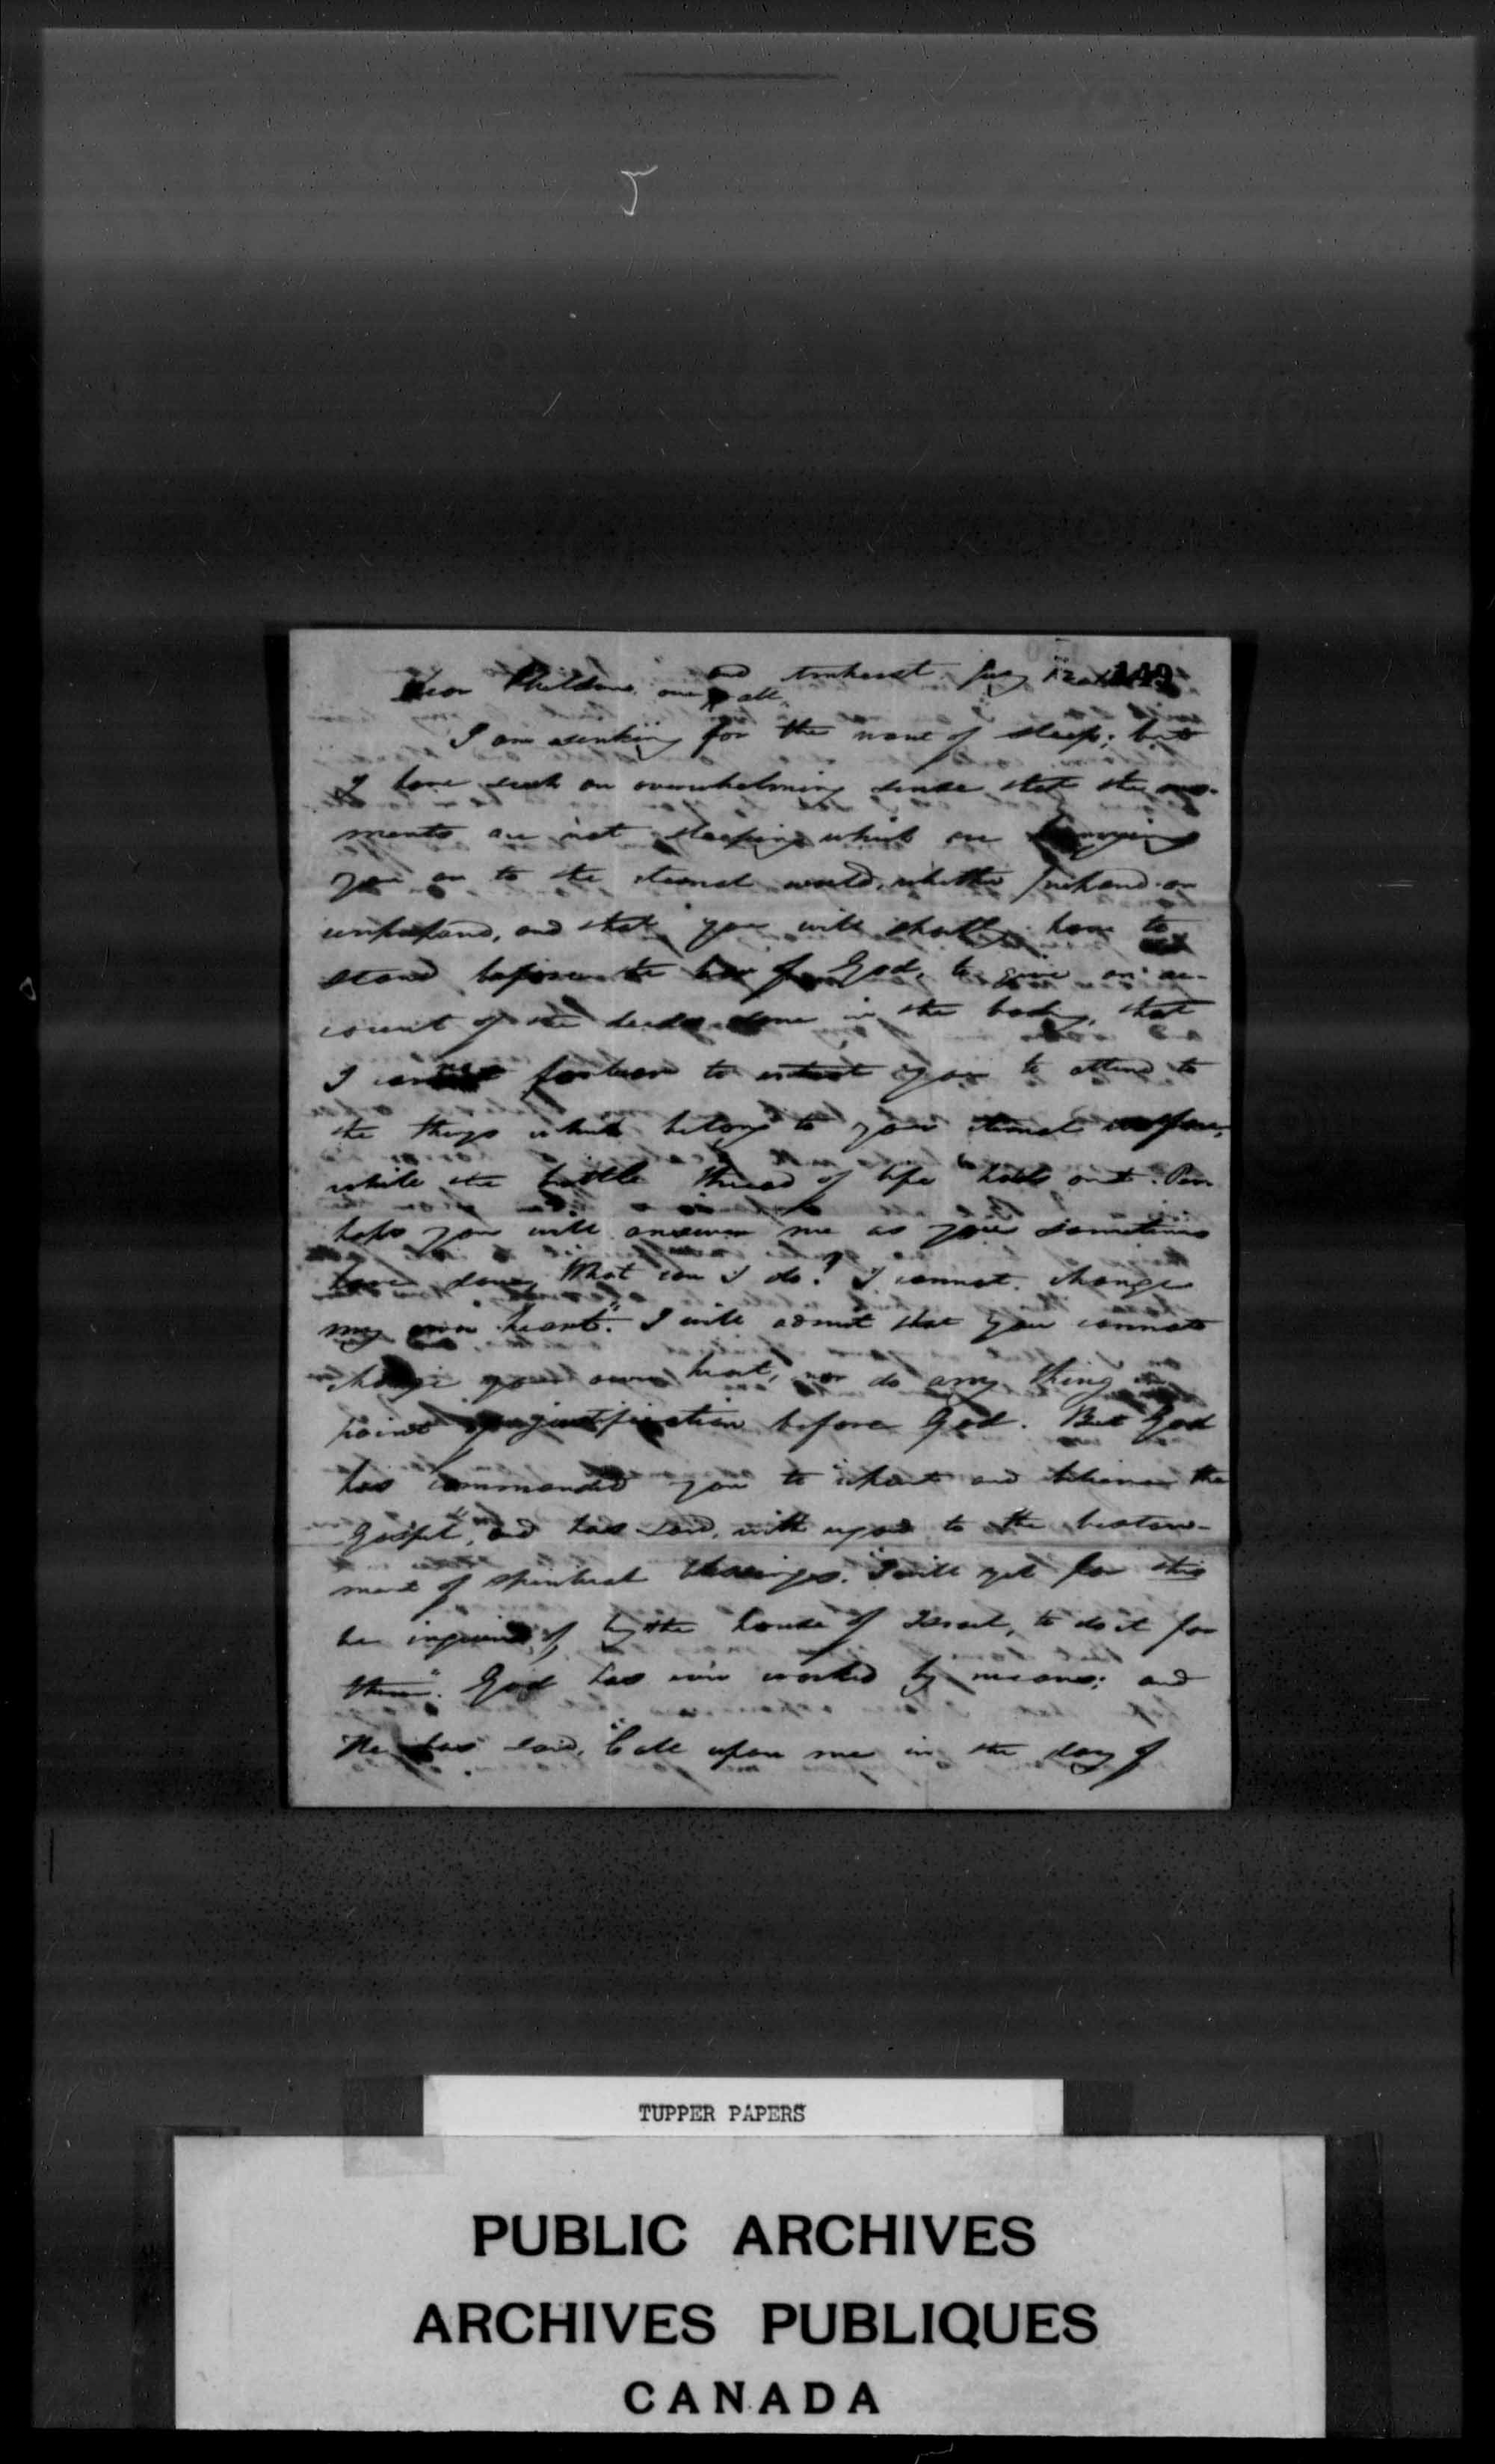 5
Amherst
149
Dear Children, one and all,
I am sinking for the want of sleep; but
I have such an overwhelming sense that the mo-
ments are not sleeping which are
you on to the eternal world, whether prepared or
unprepared, and that you will shortly have to
stand before the bar of God, to give an ac-
count of the deeds done in the body, that
I cannot forbear to entreat you to attend to
the things which belong to your eternal welfare,
while the brittle thread of life holds out. Per-
haps you will answer me as you sometimes
have done, What can I do? I cannot change
my own heart". I will admit that you cannot
change your own heart, nor do any thing in
point of justification before God. But God
has commanded you to "repent and believe the
Gospel", and has said, with regard to the bestow-
ment of spiritual blessings, "I will yet for this
be inquired of by the house of Israel, to do it for
them". God has ever worked by means; and
He has said, "Call upon me in the day of
TUPPER PAPERS
PUBLIC ARCHIVES
ARCHIVES PUBLIQUES
CANADA